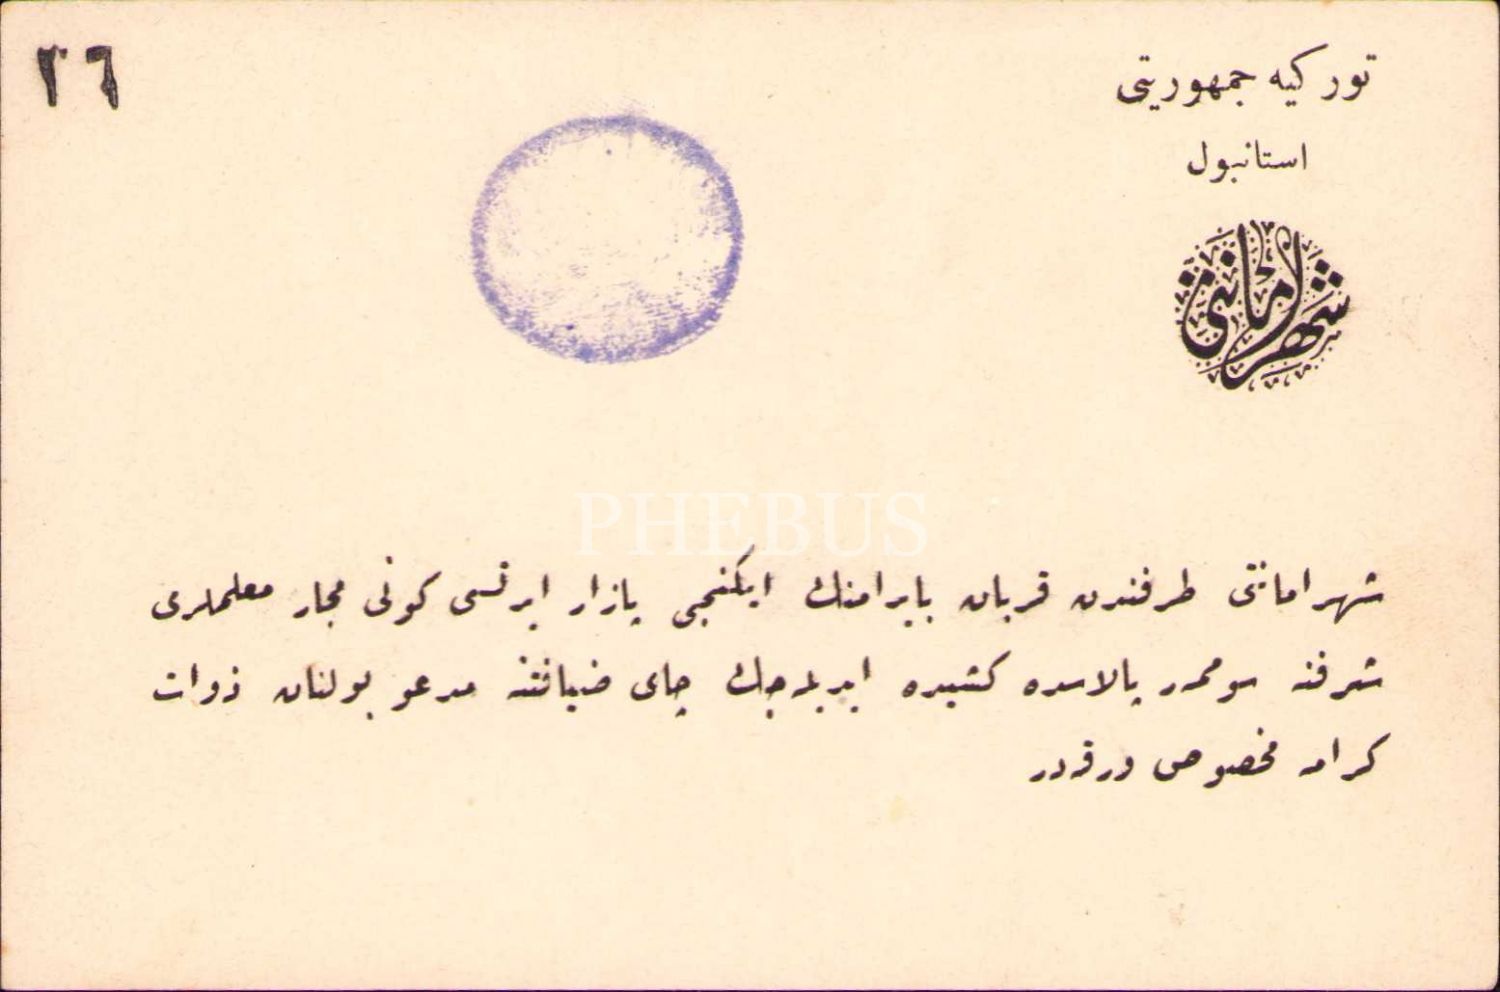 ٢٦
توركيه جمهوريتى
استانبول
شهر امانتى
PHEBUS
شهر امانتى طرفندن قربان بايرامنك ايكنجى پازار ايرتسى كونى مجار معلملرى
شرفنه سوممر پالاسده كشيده ايديله جك چاى ضيافتنه مدعو بولنان ذوات
كرامه مخصوص ورقه در